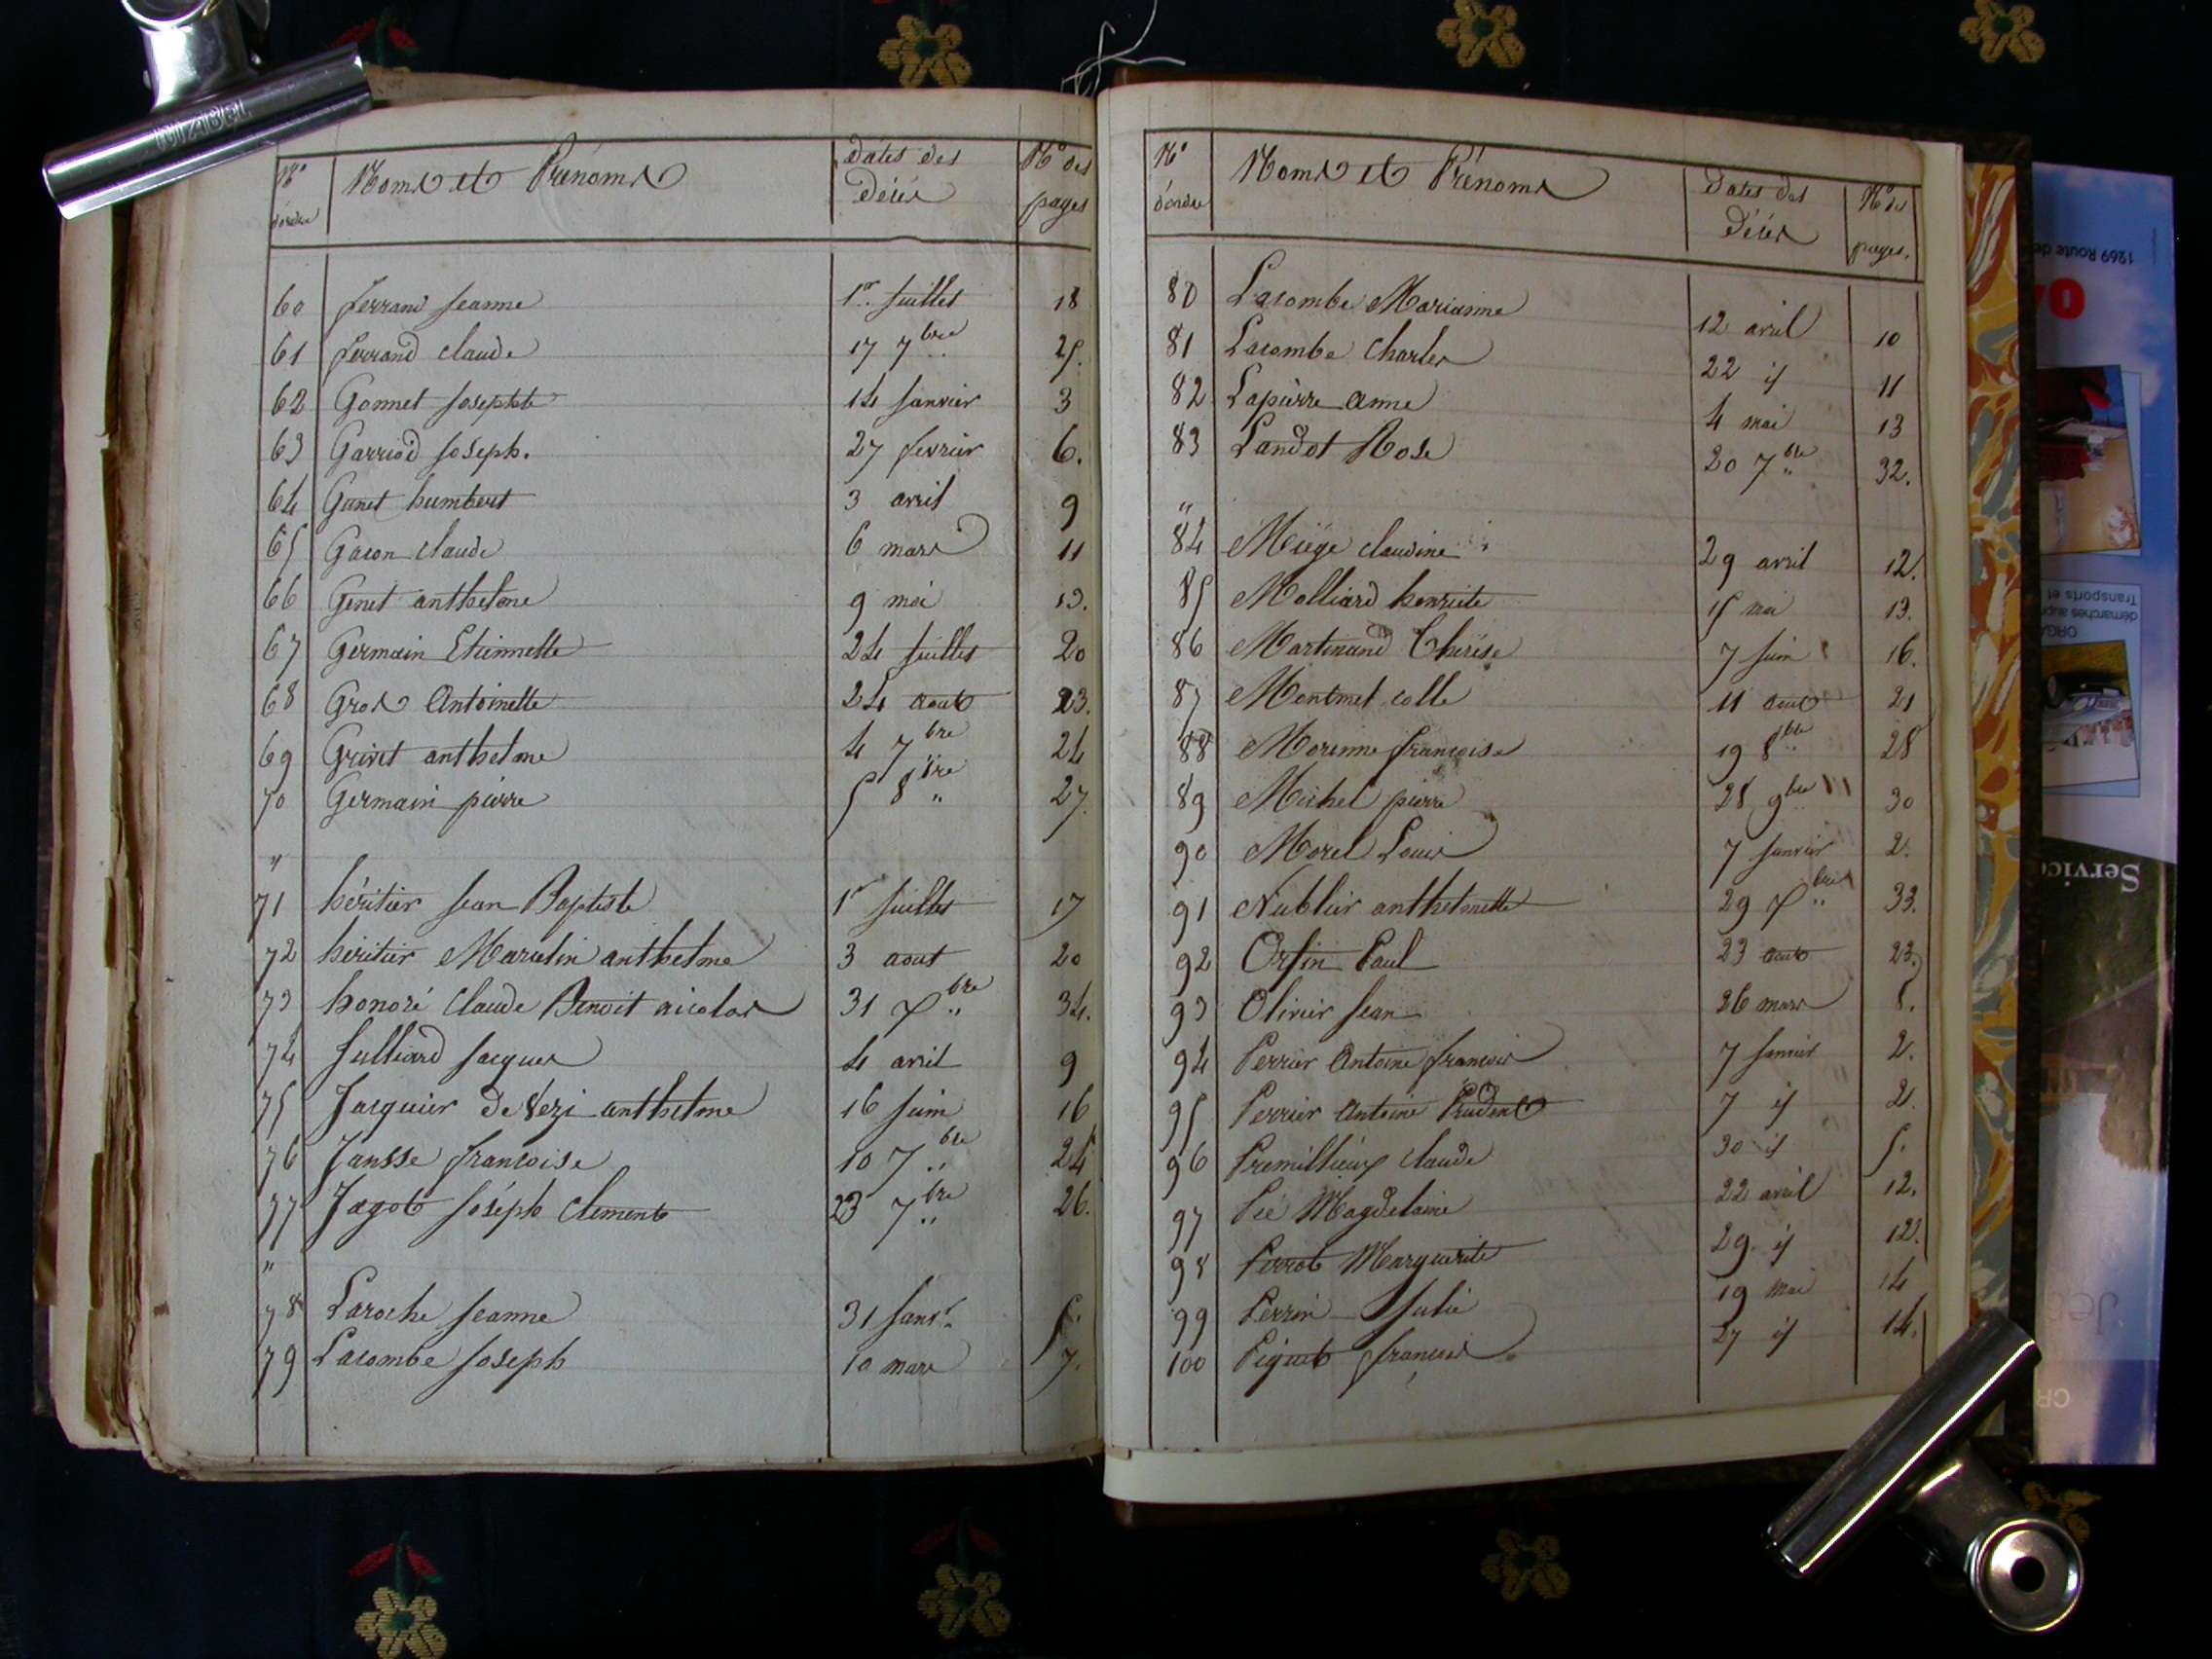 N° d'ordre Noms et Prénoms Dates des Décès N° des pages
60 ferrand Jeanne 1er Juillet 18
61 ferrand claude 17 7bre 25.
62 Gonnet Josephte 14 Janvier 3
63 Garriod Joseph. 27 fevrier 6.
64 Ganet humbert 3 avril 9
65 Gacon claude 6 mars 11
66 Genet anthelme 9 mai 13.
67 Germain Etiennette 24 Juillet 20
68 Gros Antoinette 24 aout 23.
69 Grivet anthelme 4 7bre 24
70 Germain pierre 5 8bre " 27.
"
71 héritier Jean Baptiste 1er Juillet 17
72 héritier Marcelin anthelme 3 aout 20
73 honoré Claude Benoit nicolas 31 Xbre " 34.
74 Julliard Jacques 4 avril 9
75 Jacquier de Vezi anthelme 16 Juin 16
76 Jansse françoise 10 7bre " 24
77 Jagot Joséph Clement 23 7bre " 26.
"
78 Laroche Jeanne 31 Janv. 5.
79 Lacombe Joseph 10 mars 7.
N° d'ordre Noms et Prénoms Dates des Décès N° des pages.
80 Lacombe Marianne 12 avril 10
81 Lacombe Charles 22 id 11
82 Lapierre anne 4 mai 13
83 Landot Rose 20 7bre " 32.
"
84 Miége claudine 29 avril 12.
85 Molliard henriete 15 mai 13.
86 Martinand Thérèse 7 Juin 16.
87 Montmet colle 11 aout 21
88 Morenne françoise 19 8bre 28
89 Michel pierre 28 9bre 30
90 Morel Louis 7 Janvier 2.
91 Nublier anthelmette 29 Xbre " 33.
92 Orsin Paul 23 aout 23.
93 Olivier Jean 26 mars 8.
94 Perrier Antoine françois 7 Janvier 2.
95 Perrier Antoine Prudent 7 id 2.
96 Premillieux claude 30 id 5.
97 Pié Magdelaine 22 avril 12.
98 Perrot Marguerite 29. id 12.
99 Perrin Julie 19 Mai 14
100 Piguet françois 27 id 14.
1269 Route de
Transports et
Service